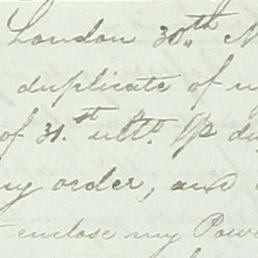 London 30th N
duplicate of
of 31.st ulto. P
my order, and
enclose my Power